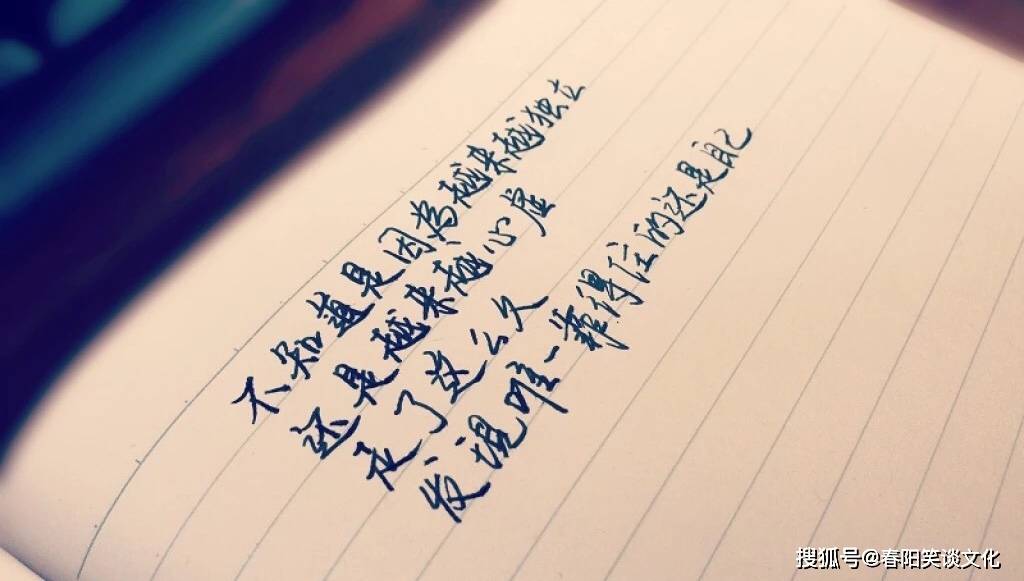 不知道是因为越来越独立
还是越来越心虚
走了这么久
发现唯一靠得住的还是自己
搜狐号@春阳笑谈文化